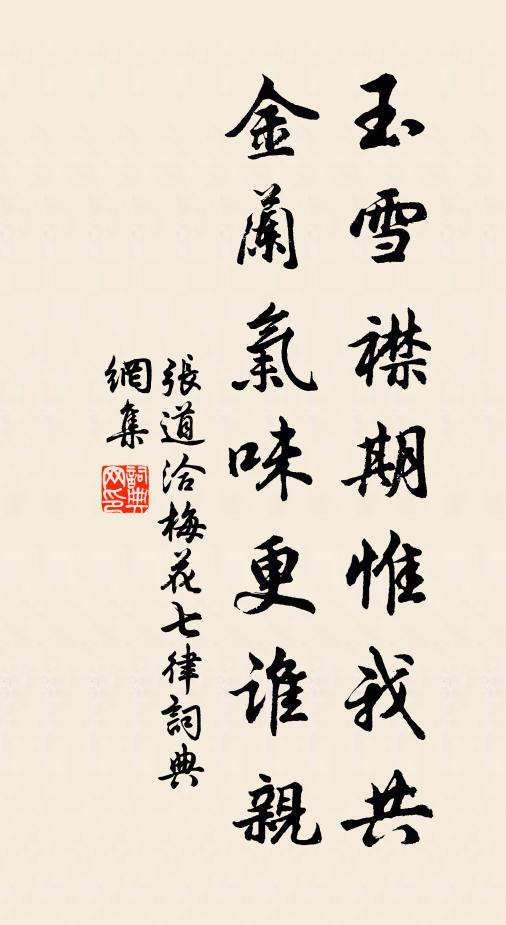 玉雪襟期惟我共
金蘭氣味更誰親
張道洽梅花七律詞典
網集
詞典
网印